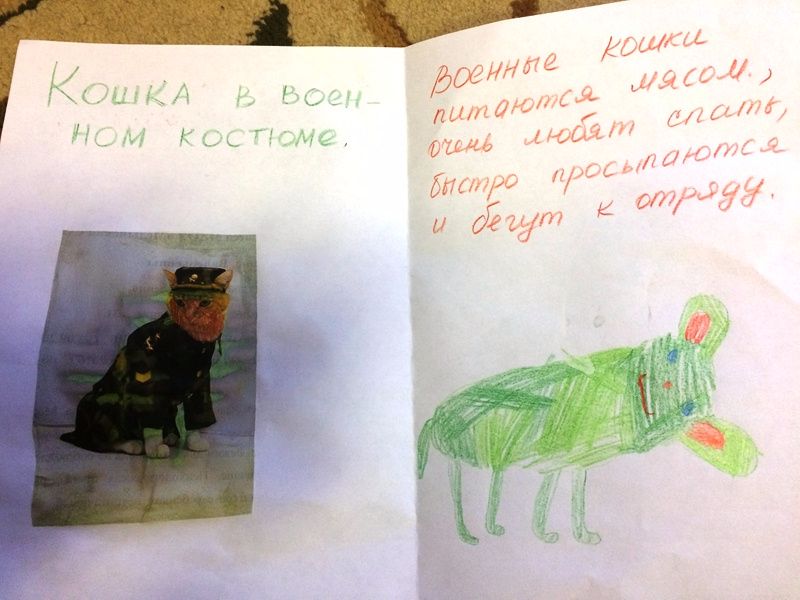 Кошка в воен-
ном костюме.
Военные кошки
питаются мясом.,
очень любят спать,
быстро просыпаются
и бегут к отряду.